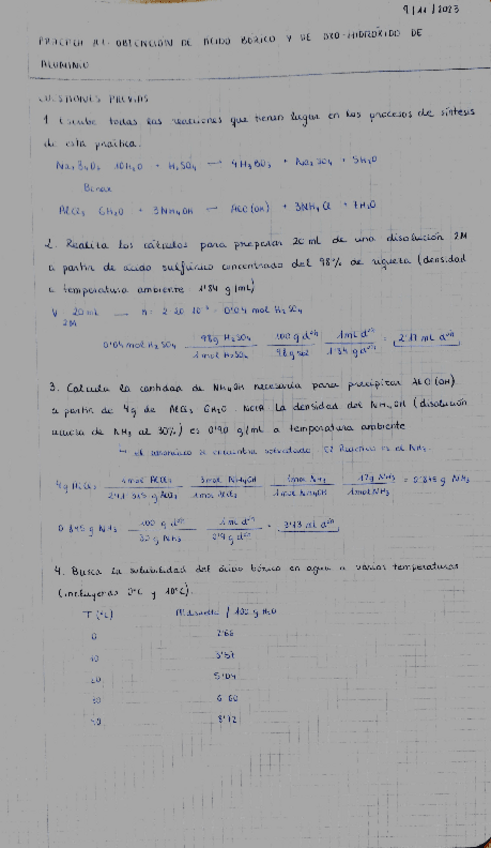 9/11/2023
PRÁCTICA A1: OBTENCIÓN DE ÁCIDO BÓRICO Y DE OXO-HIDRÓXIDO DE
ALUMINIO
CUESTIONES PREVIAS
1. Escribe todas las reacciones que tienen lugar en los procesos de síntesis
de esta práctica.
Na2B4O7 · 10H2O + H2SO4 → 4H3BO3 + Na2SO4 + 5H2O
Bórax
AlCl3 · 6H2O + 3NH4OH → AlO(OH) + 3NH4Cl + 7H2O
2. Realiza los cálculos para preparar 20 ml de una disolución 2M
a partir de ácido sulfúrico concentrado del 98% de riqueza (densidad
a temperatura ambiente 1'84 g/mL)
V 20 mL → n = 2 · 20 · 10-3 = 0'04 mol H2SO4
2M
0'04 mol H2SO4 98g H2SO4 / 1 mol H2SO4 100 g d / 98 g 1 mL d / 1'84 g d = 2'17 mL
3. Calcula la cantidad de NH4OH necesaria para precipitar AlO(OH)
a partir de 4g de AlCl3 · 6H2O. NOTA: la densidad del NH4OH (disolución
acuosa de NH3 al 30%) es 0'90 g/mL a temperatura ambiente
el amoníaco se encuentra El reactivo es el NH3.
4g AlCl3 1 mol AlCl3 / g AlCl3 3 mol NH4OH / 1 mol AlCl3 1 mol NH3 / 1 mol NH4OH 17g NH3 / 1 mol NH3 = 0'845 g NH3
0'845 g NH3 100 g d / 30 g NH3 1 mL d / 0'9 g d = 3'13 mL
4. Busca la solubilidad del ácido bórico en agua a varias temperaturas
(incluyendo 0°C y 10°C).
T (°C) / 100 g H2O
0 2'66
10 3'57
20 5'04
30 6'60
40 8'72